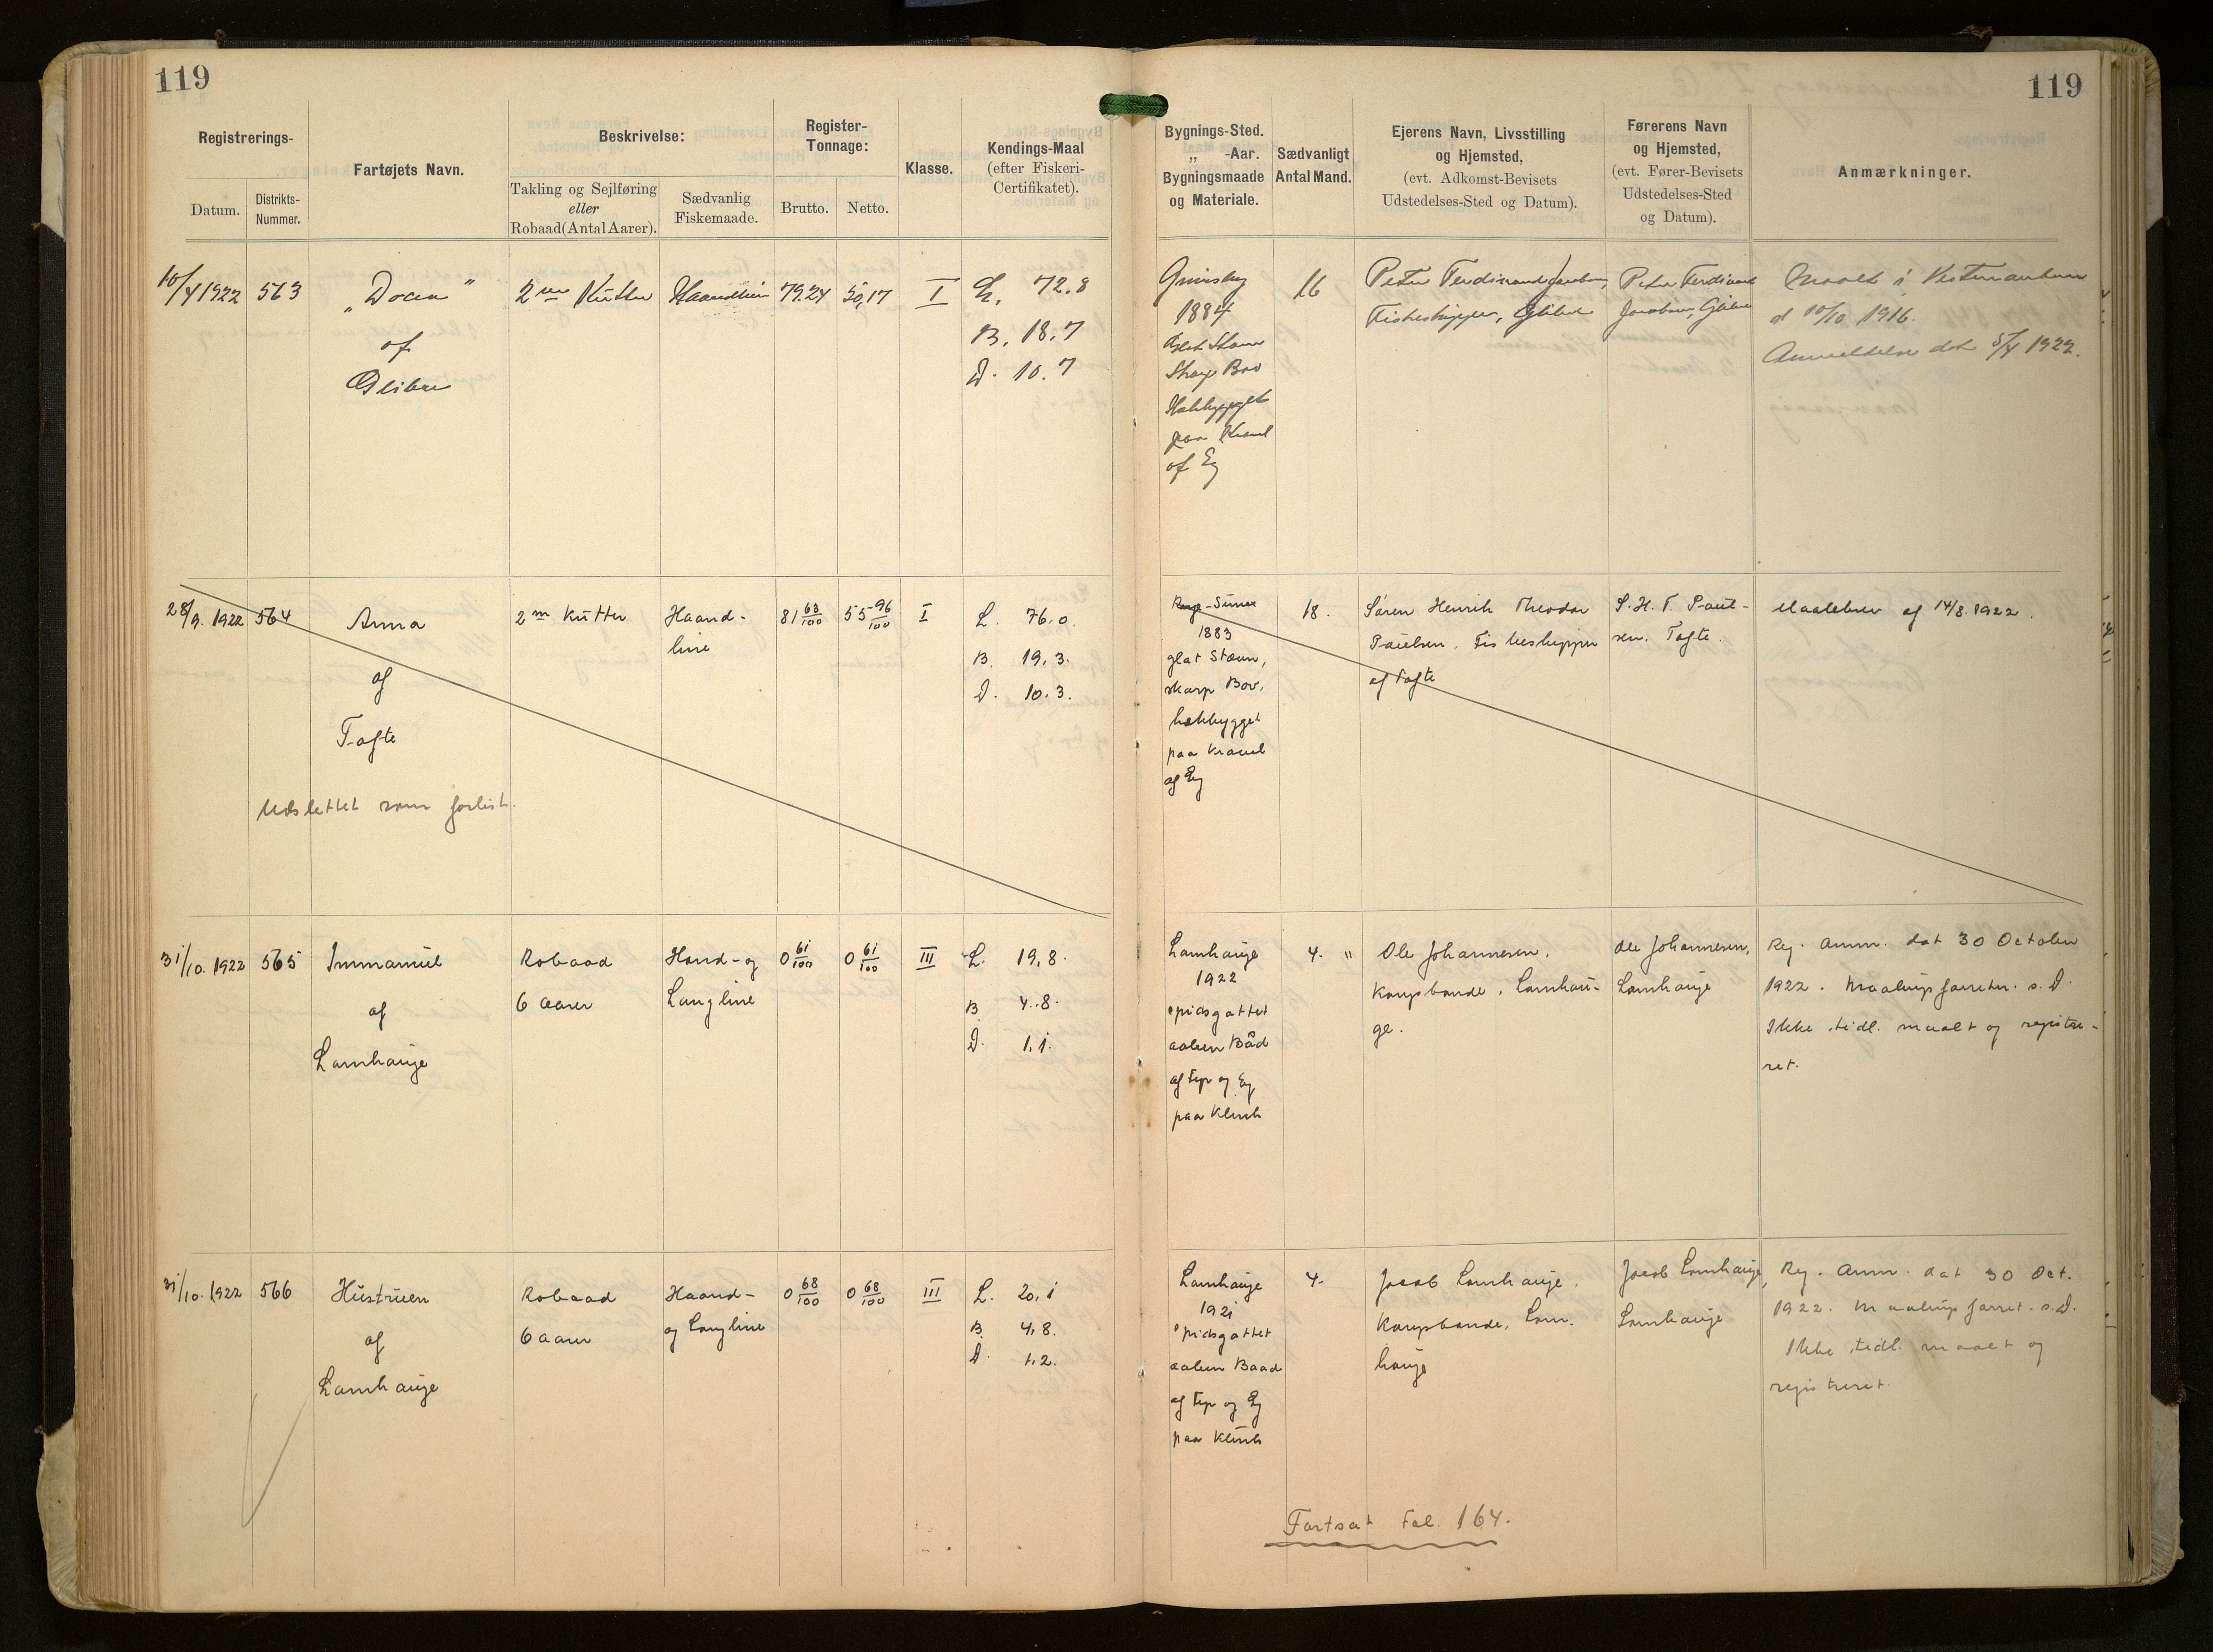 119
119
Registrerings-
Datum.
Distrikts-
Nummer.
Fartøjets Navn.
Beskrivelse:
Takling og Sejlføring
eller
Robaad (Antal Aarer).
Sædvanlig
Fiskemaade.
Register-
Tonnage:
Brutto.
Netto.
Klasse.
Kendings-Maal
(efter Fiskeri-
Certifikatet).
Bygnings-Sted.
„ -Aar.
Bygningsmaade
og Materiale.
Sædvanligt
Antal Mand.
Ejerens Navn, Livsstilling
og Hjemsted,
(evt. Adkomst-Bevisets
Udstedelses-Sted og Datum).
Førerens Navn
og Hjemsted,
(evt. Fører-Bevisets
Udstedelses-Sted
og Datum).
Anmærkninger.
10/4 1922
563
of
2 m Kutter
79.24
50,17
I
L. 72.8
B. 18.7
D. 10.7
Grimsby
1884
Glat Stævn
Skarp Bov
Hækbygget
paa Kravel
af Eg
16
Peter Ferdinand Jacobsen,
Fiskeskipper,
Peter Ferdinand
Jacobsen,
Maalt i Vestmanhavn
d 10/10 1916.
Anmeldelse dat 5/4 1922.
28/9. 1922
564
Anna
af
Tofte
Udslettet som forlist.
2 m Kutter
Haand-
line
81 63/100
55 96/100
I
L. 76.0.
B. 19.3.
D. 10.3.
1883
glat Stævn,
skarp Bov,
hækbygget
paa Kravel
af Eg
18.
Søren Henrik Theodor
Poulsen. Fiskeskipper
af Tofte
S. H. T. Poul-
sen. Tofte.
Maalebrev af 14/8. 1922.
31/10. 1922
565
Immanuel
af
Lamhauge
Robaad
6 Aarer
Haand- og
Langline
0 61/100
0 61/100
III
L. 19.8.
B. 4.8.
D. 1.1.
Lamhauge
1922
spidsgattet
aaben Båd
af Fyr og Eg
paa Klink
4. "
Ole Johannesen.
Kongsbonde. Lamhau-
ge.
Ole Johannesen,
Lamhauge
Reg. Anm. dat 30 October
1922. Maalingsforretn. s. D.
Ikke tidl. maalt og registre-
ret.
31/10. 1922
566
Hustruen
af
Lamhauge
Robaad
6 Aarer
Haand-
og Langline
0 68/100
0 68/100
III
L. 20.1
B. 4.8.
D. 1.2.
Lamhauge
1921
spidsgattet
aaben Baad
af Fyr og Eg
paa Klink
4.
Jacob Lamhauge.
Kongsbonde, Lam.
hauge
Jacob Lamhauge,
Lamhauge
Reg. Anm. dat 30 Oct.
1922. Maalingsforret. s. D.
Ikke tidl. maalt og
registreret.
Fortsat Fol. 164.